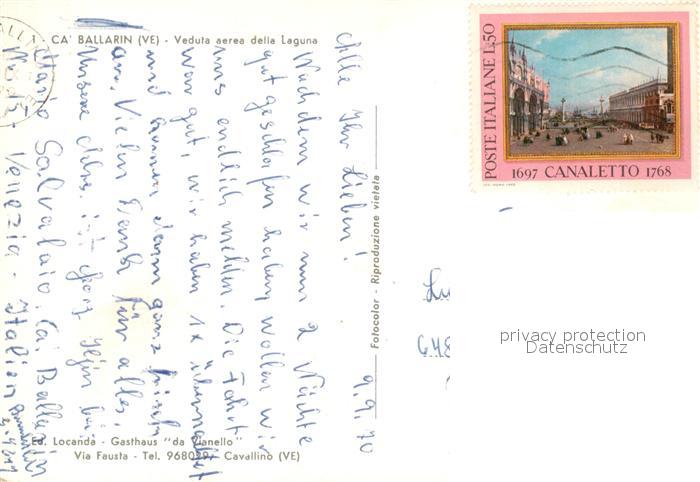 1 - CA' BALLARIN (VE) - Veduta aerea della Laguna
9.9.70
Alle Ihr Lieben!
Nachdem wir nun 2 Nächte
gut geschlafen haben wollen wir
uns endlich melden. Die Fahrt
war gut, wir haben 1x übernachtet
und kamen dann ganz frisch
an. Vielen Dank für alles.
Unsere Adres. ist
Mario Salvalaio, Ca. Ballarin
Venezia - Italien
Ed. Locanda - Gasthaus "da Pianello"
Via Fausta - Tel. 968029 - Cavallino (VE)
Fotocolor - Riproduzione vietata
POSTE ITALIANE L.50
1697 CANALETTO 1768
privacy protection
Datenschutz